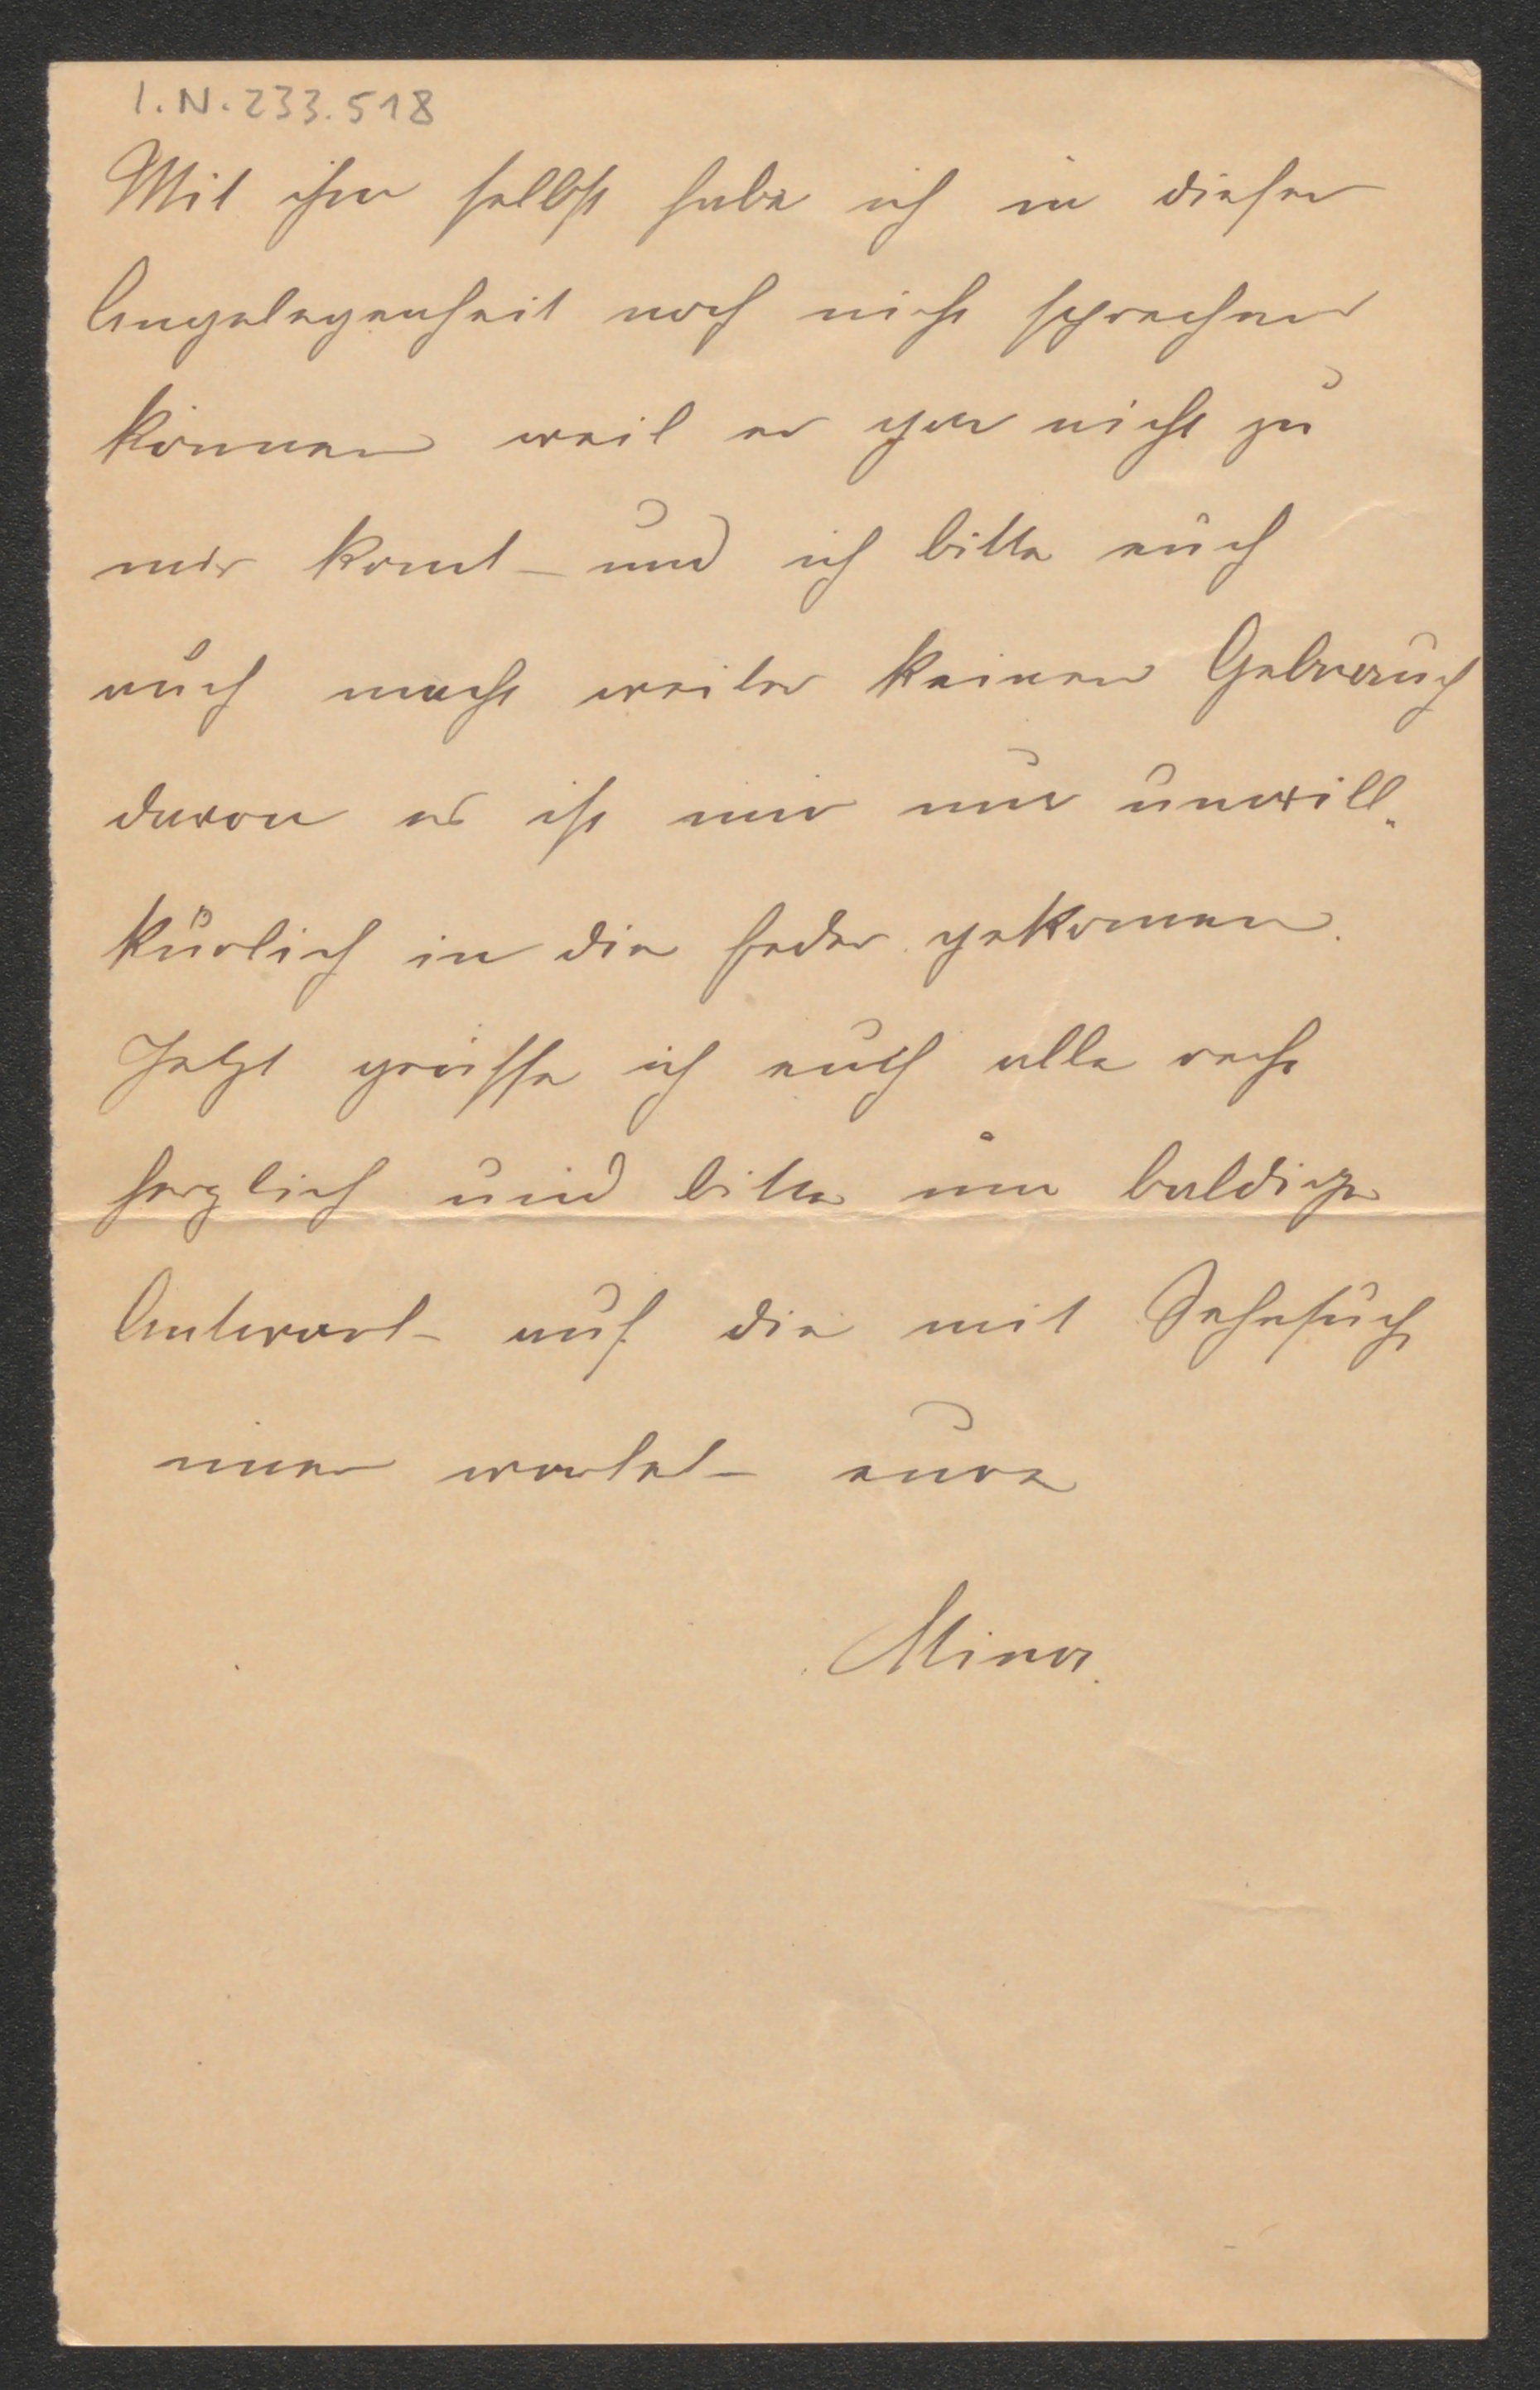 I.N. 233.518
Mit ihm selbst habe ich in dieser
Angelegenheit noch nicht sprechen
können weil er gar nicht zu
mir komt – und ich bitte euch
auch macht weiter keinen Gebrauch
davon es ist mir nur unwill„
kürlich in die Feder gekomen.
Jetzt grüsse ich euch alle recht
herzlich und bitte um baldige
Antwort – auf die mit Sehnsucht
imer wartet – eure
Mina.